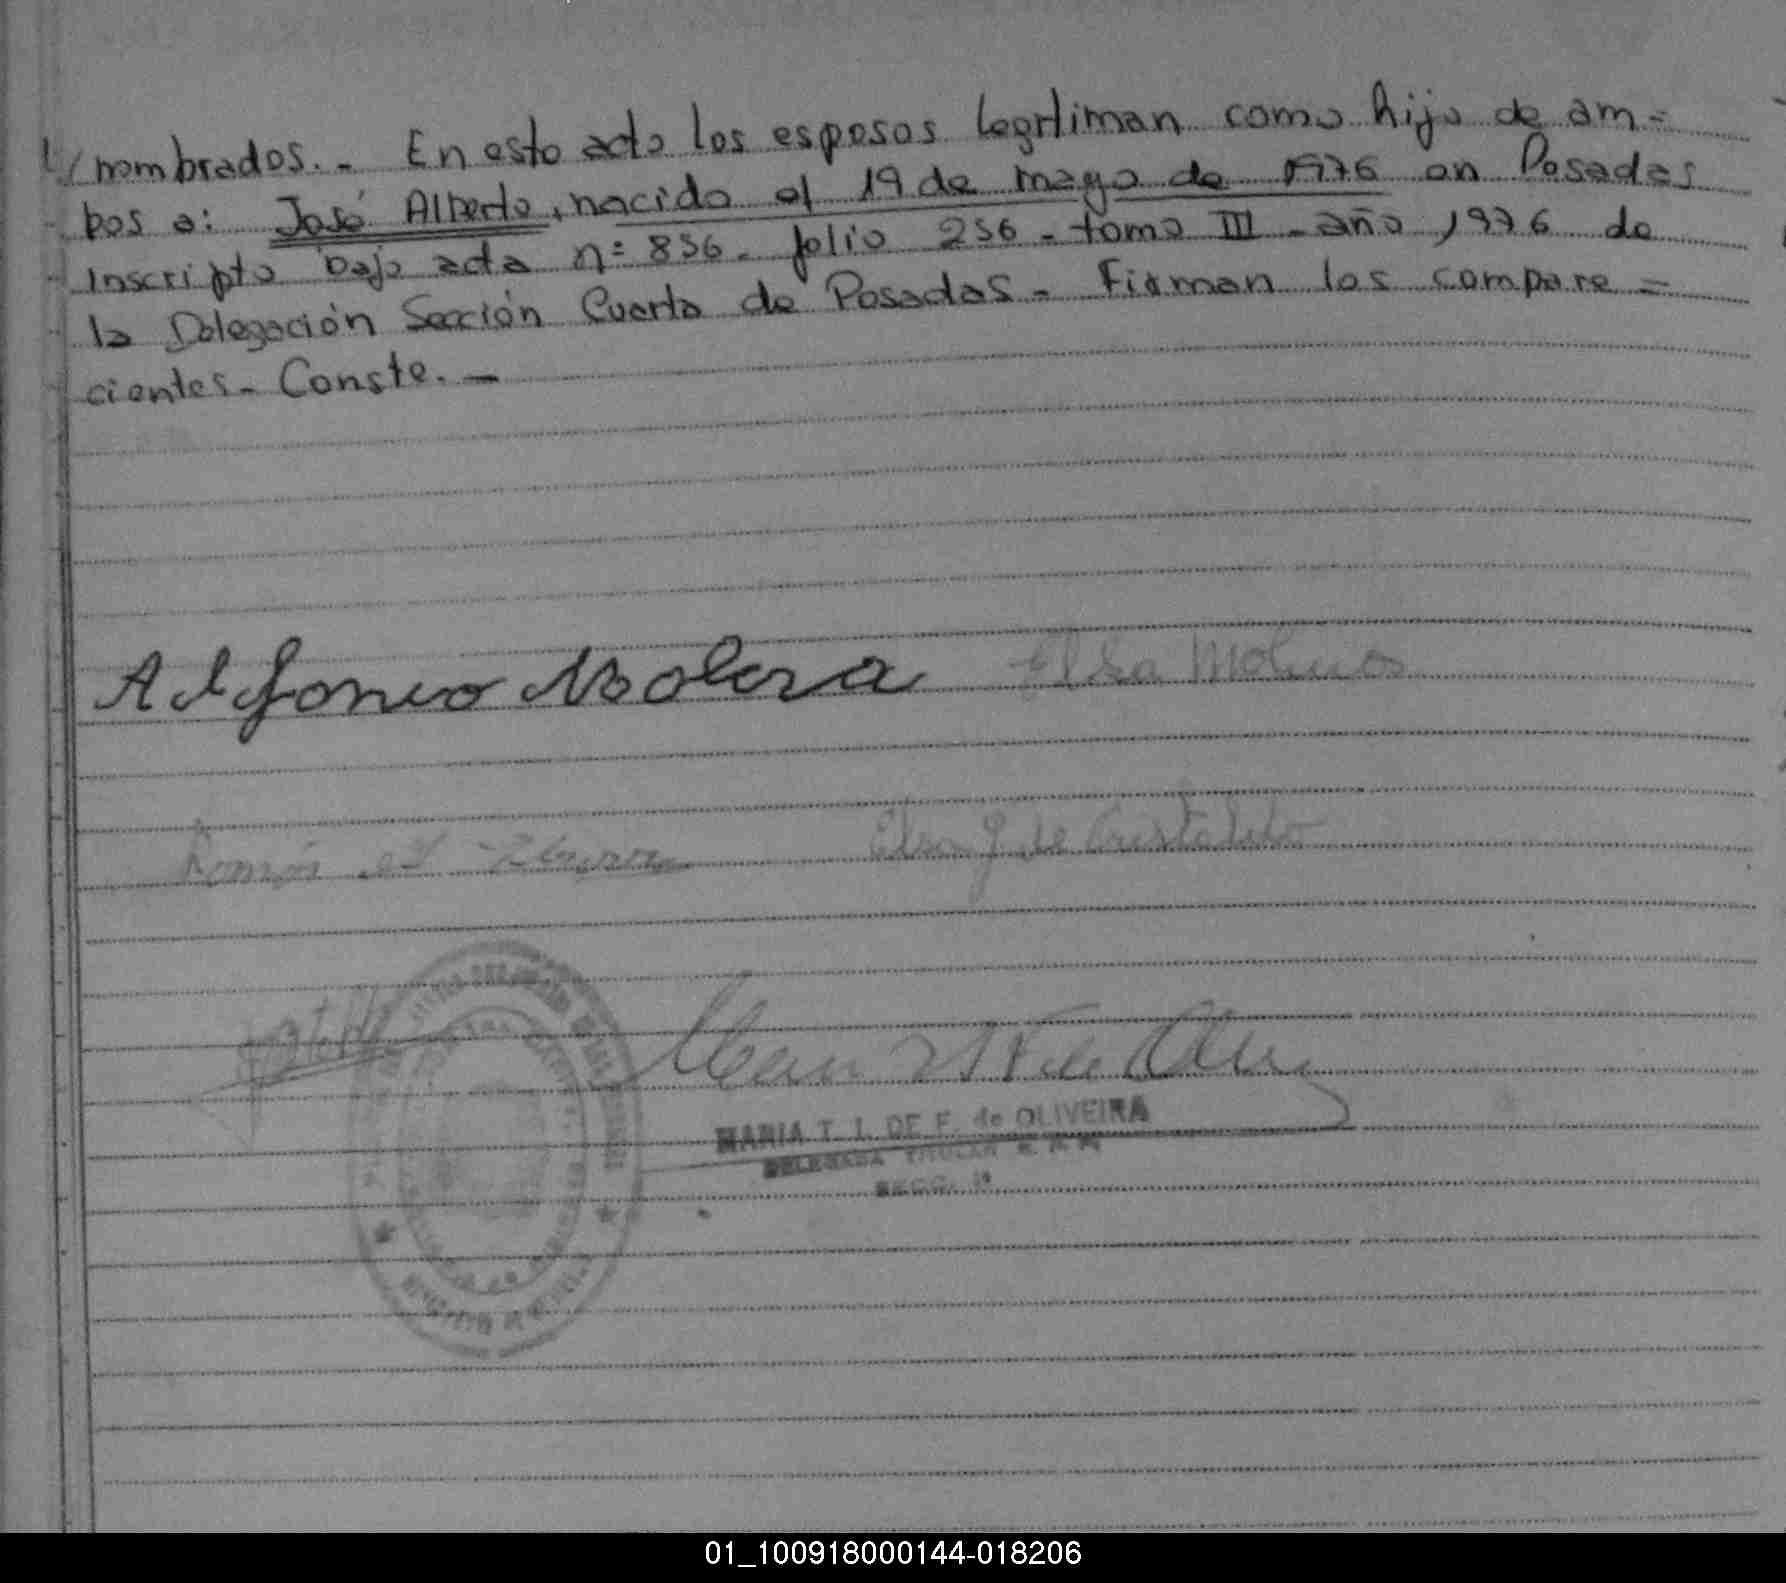 // nombrados. - En esto acto los esposos legitiman como hijo de am=
bos a: José Alberto, nacido el 19 de mayo de 1976 en Posadas
Inscripto bajo acta n= 836. folio 256 - tomo III - año 1976 de
la Delegación Sección Cuarta de Posadas - Firman los compare =
cientes - Conste. -
Alfonso Molera Elsa Molinos
Ramón
Elsa J. de
MARIA T. I. DE F. de OLIVEIRA
DELEGADA TITULAR
SECC.
01_100918000144-018206